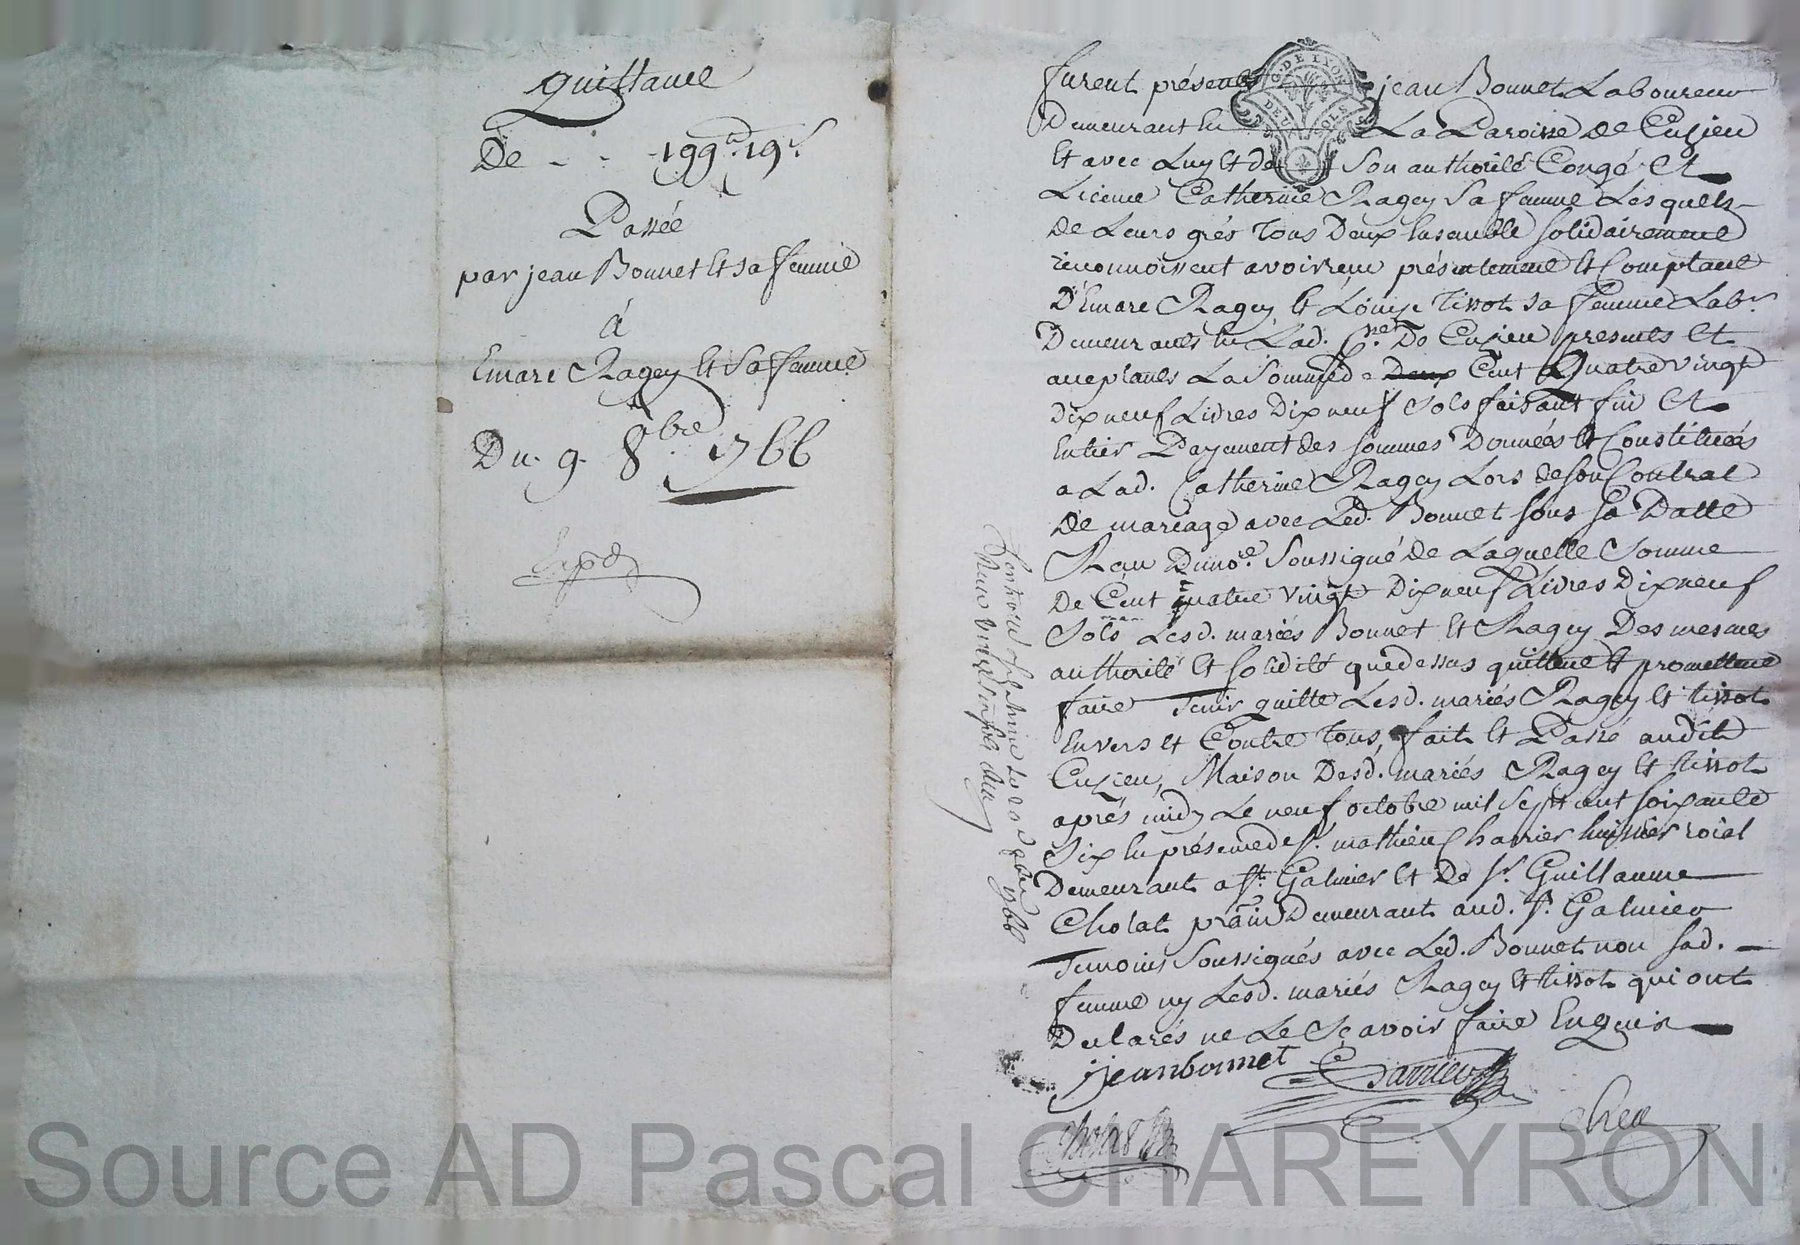 quittance
De - - 199ᵗ 19ˢ
Passée
par jean Bonnet Et sa femme
à
Emare Ragey Et Sa femme
Du 9 8bre 1766
Exp.d
furent présents jean Bonnet Laboureur
G. DE LYON
DEUX SOLS
Demeurant En La Paroisse de Cuzieu
Et avec Luy Et de Son authorité Congé Et
Licence Catherine Ragey Sa femme Lesquels
de Leurs grés Tous Deux Ensemble solidairement
reconnoissent avoir reçu présentement Et Comptant
D'Emare Ragey Et Louise Tissot sa femme Lab.rs
Demeurants En Lad. p.sse De Cuzieu presents Et
aceptants La Somme de Deux Cent Quatre vingt
Dix neuf Livres Dix neuf Sols faisant fin Et
Entier Payement des sommes Données Et Constituées
a Lad. Catherine Ragey Lors de son Contrat
De mariage avec Led. Bonnet sous sa Datte
Recu Du no.re Soussigné de Laquelle Somme
De Cent quatre vingt Dix neuf Livres Dix neuf
Sols Lesd. mariés Bonnet Et Ragey Des mesmes
authorité Et solidité que dessus quittent Et promettent
faire Tenir quitte Lesd. mariés Ragey Et tissot
Envers Et Contre Tous, fait Et Passé audit
Cuzieu, Maison Desd. mariés Ragey Et tissot
aprés midy Le neuf octobre mil Sept cent soixante
Six En présence de S.r mathieu Charrier huissier roial
Demeurant a S.t Galmier Et De S.r Guillaume
Cholat pratn Demeurant aud. S.t Galmier
Temoins Soussignés avec Led. Bonnet non sad.
femme ny Lesd. mariés Ragey Et tissot qui ont
Declarés ne Le Sçavoir faire Enquis
jean bonnet Charrier
Cholat
1766
Source AD Pascal CHAREYRON